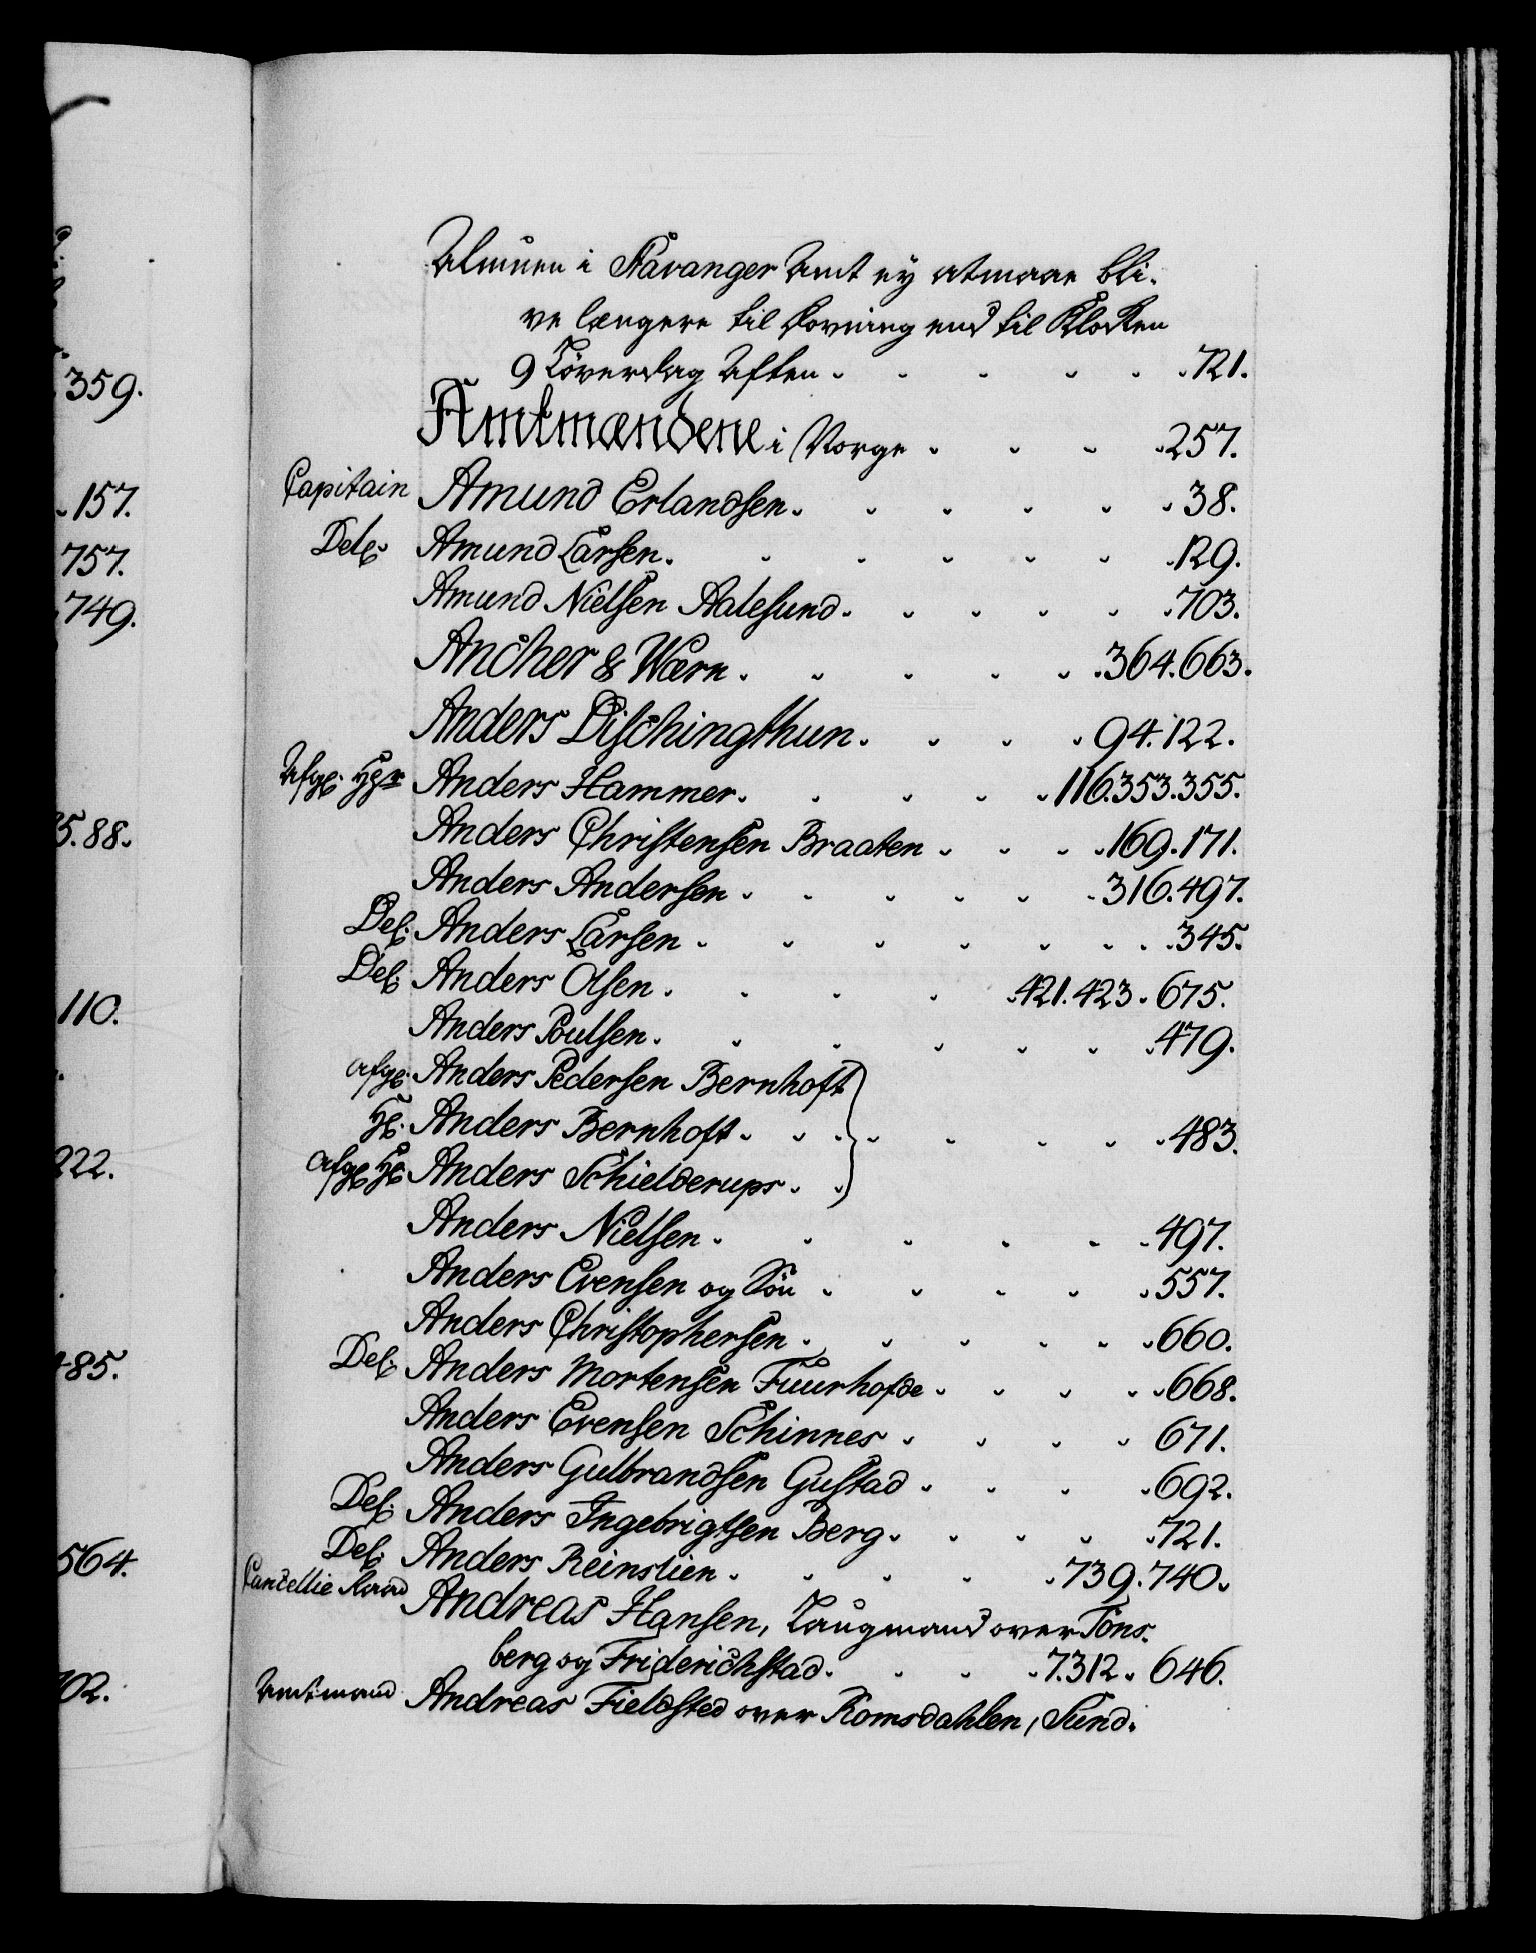 359.
157.
757.
749.
5.88.
110.
222.
485.
564.
02.
Almuen i Stavanger Amt ey at maae bli-
ve længere til Hovning end til Klocken
9 Løverdag Aften . . . . . 721.
Amtmændene i Norge . . . 257.
Capitain Amund Erlandsen . . . . . 38.
Del. Amund Larsen . . . . . 129.
Amund Nielsen Aalesund . . . . . 703.
Ancher & Wærn . . . . . 364.663.
Anders Dischingthun . . . . 94.122.
Afg: Hr Anders Hammer . . . . 116.353.355.
Anders Christensen Braaten . . . . 169.171.
Anders Andersen . . . . . 316.497.
Del: Anders Larsen . . . . . 345.
Del: Anders Olsen . . . . 421.423.675.
Anders Poulsen . . . . . 479.
afg: Anders Pedersen Bernhoft
Hr: Anders Bernhoft . . . . . . 483.
afg: Hr: Anders Schielderups . .
Anders Nielsen . . . . . 497.
Anders Evensen og Søn . . . . . 557.
Anders Christophersen . . . . . 660.
Del: Anders Mortensen Fuurhofde . . . . 668.
Anders Evensen Schinnes . . . . 671.
Anders Gulbrandsen Gustad . . . . 692.
Del: Anders Ingebrigtsen Berg . . . . 721.
Del: Anders Reinslien . . . . 739.740.
Cancellie Raad Andreas Hansen, Laugmand over Tøns-
berg og Friderichstad . . . . 7.312.646.
Amtmand Andreas Fieldsted over Romsdahlen, Sund-